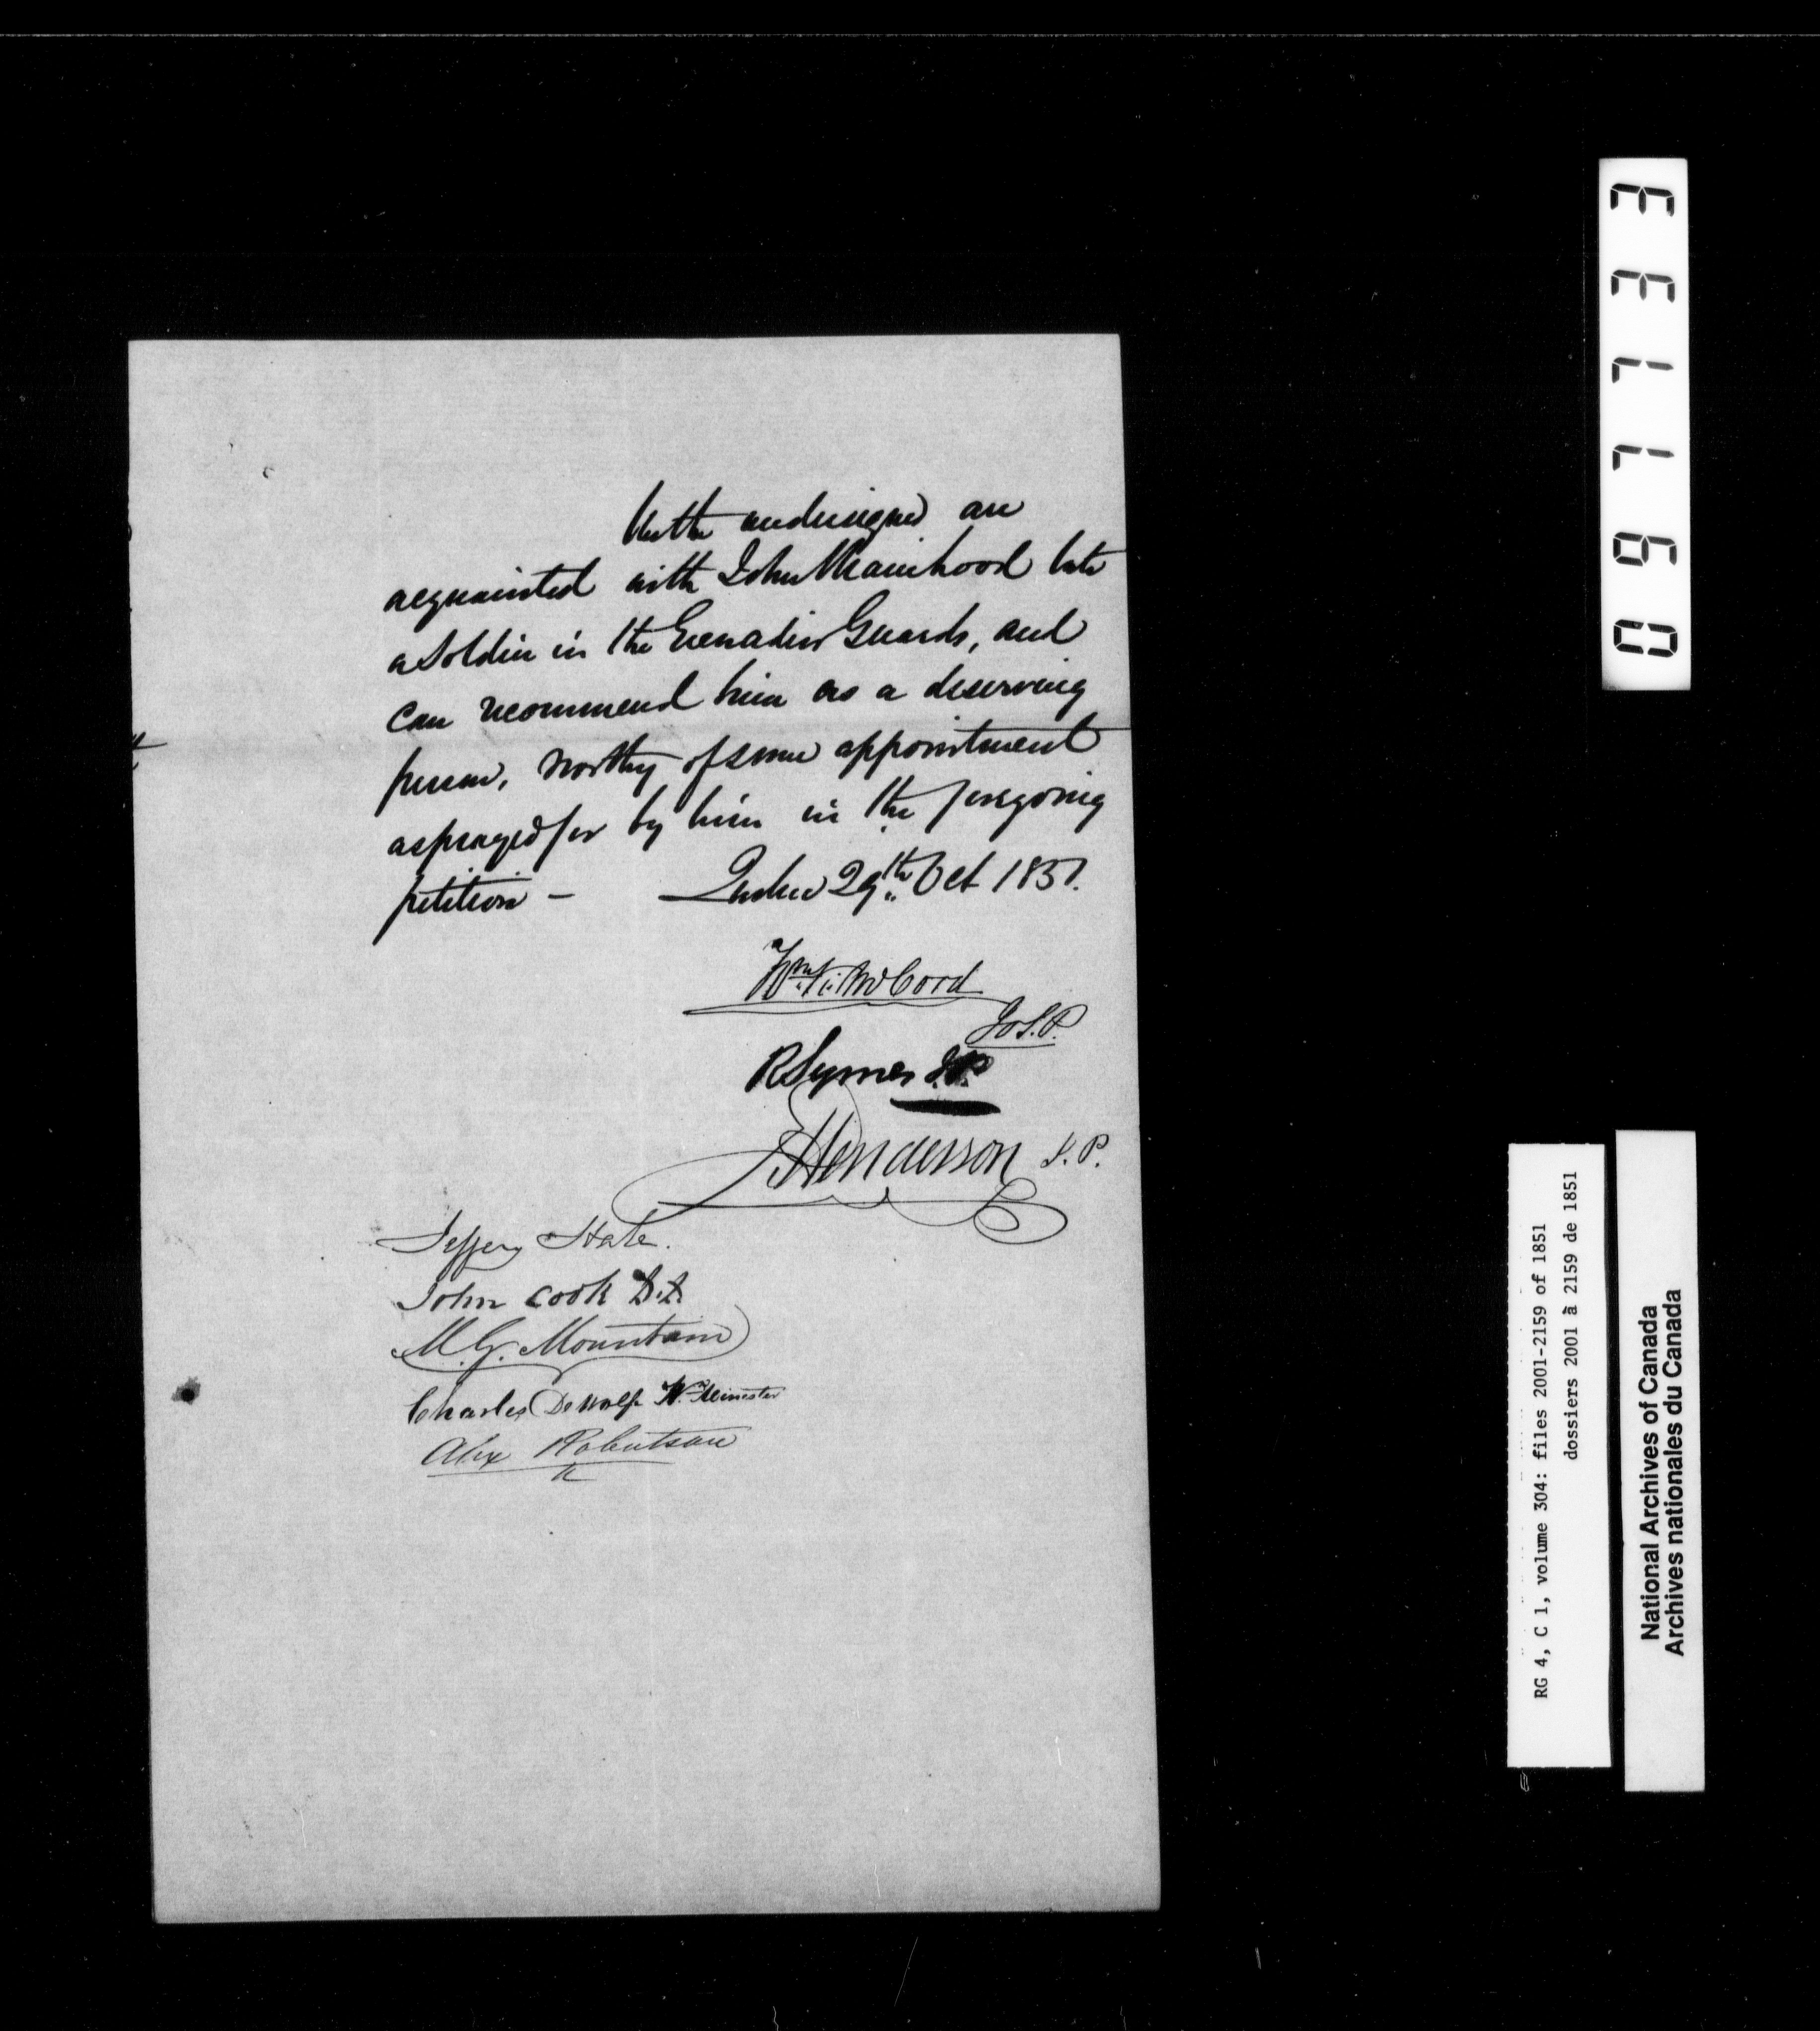 We the undersigned are
acquainted with John Mainhood late
a Soldier in the Grenadier Guards, and
can recommend him as a deserving
person, worthy of some appointment
as prayed for by him in the foregoing
petition — Quebec 29th Oct 1851.
Wm K. McCord
J.S.P.
R Symes J.P.
Henderson J.P.
Jeffery Hale.
John Cook D.D.
M. G. Mountain
Charles DeWolfe W. Minister
Alex Robertson
097733
RG 4, C 1, volume 304: files 2001-2159 of 1851
dossiers 2001 à 2159 de 1851
National Archives of Canada
Archives nationales du Canada